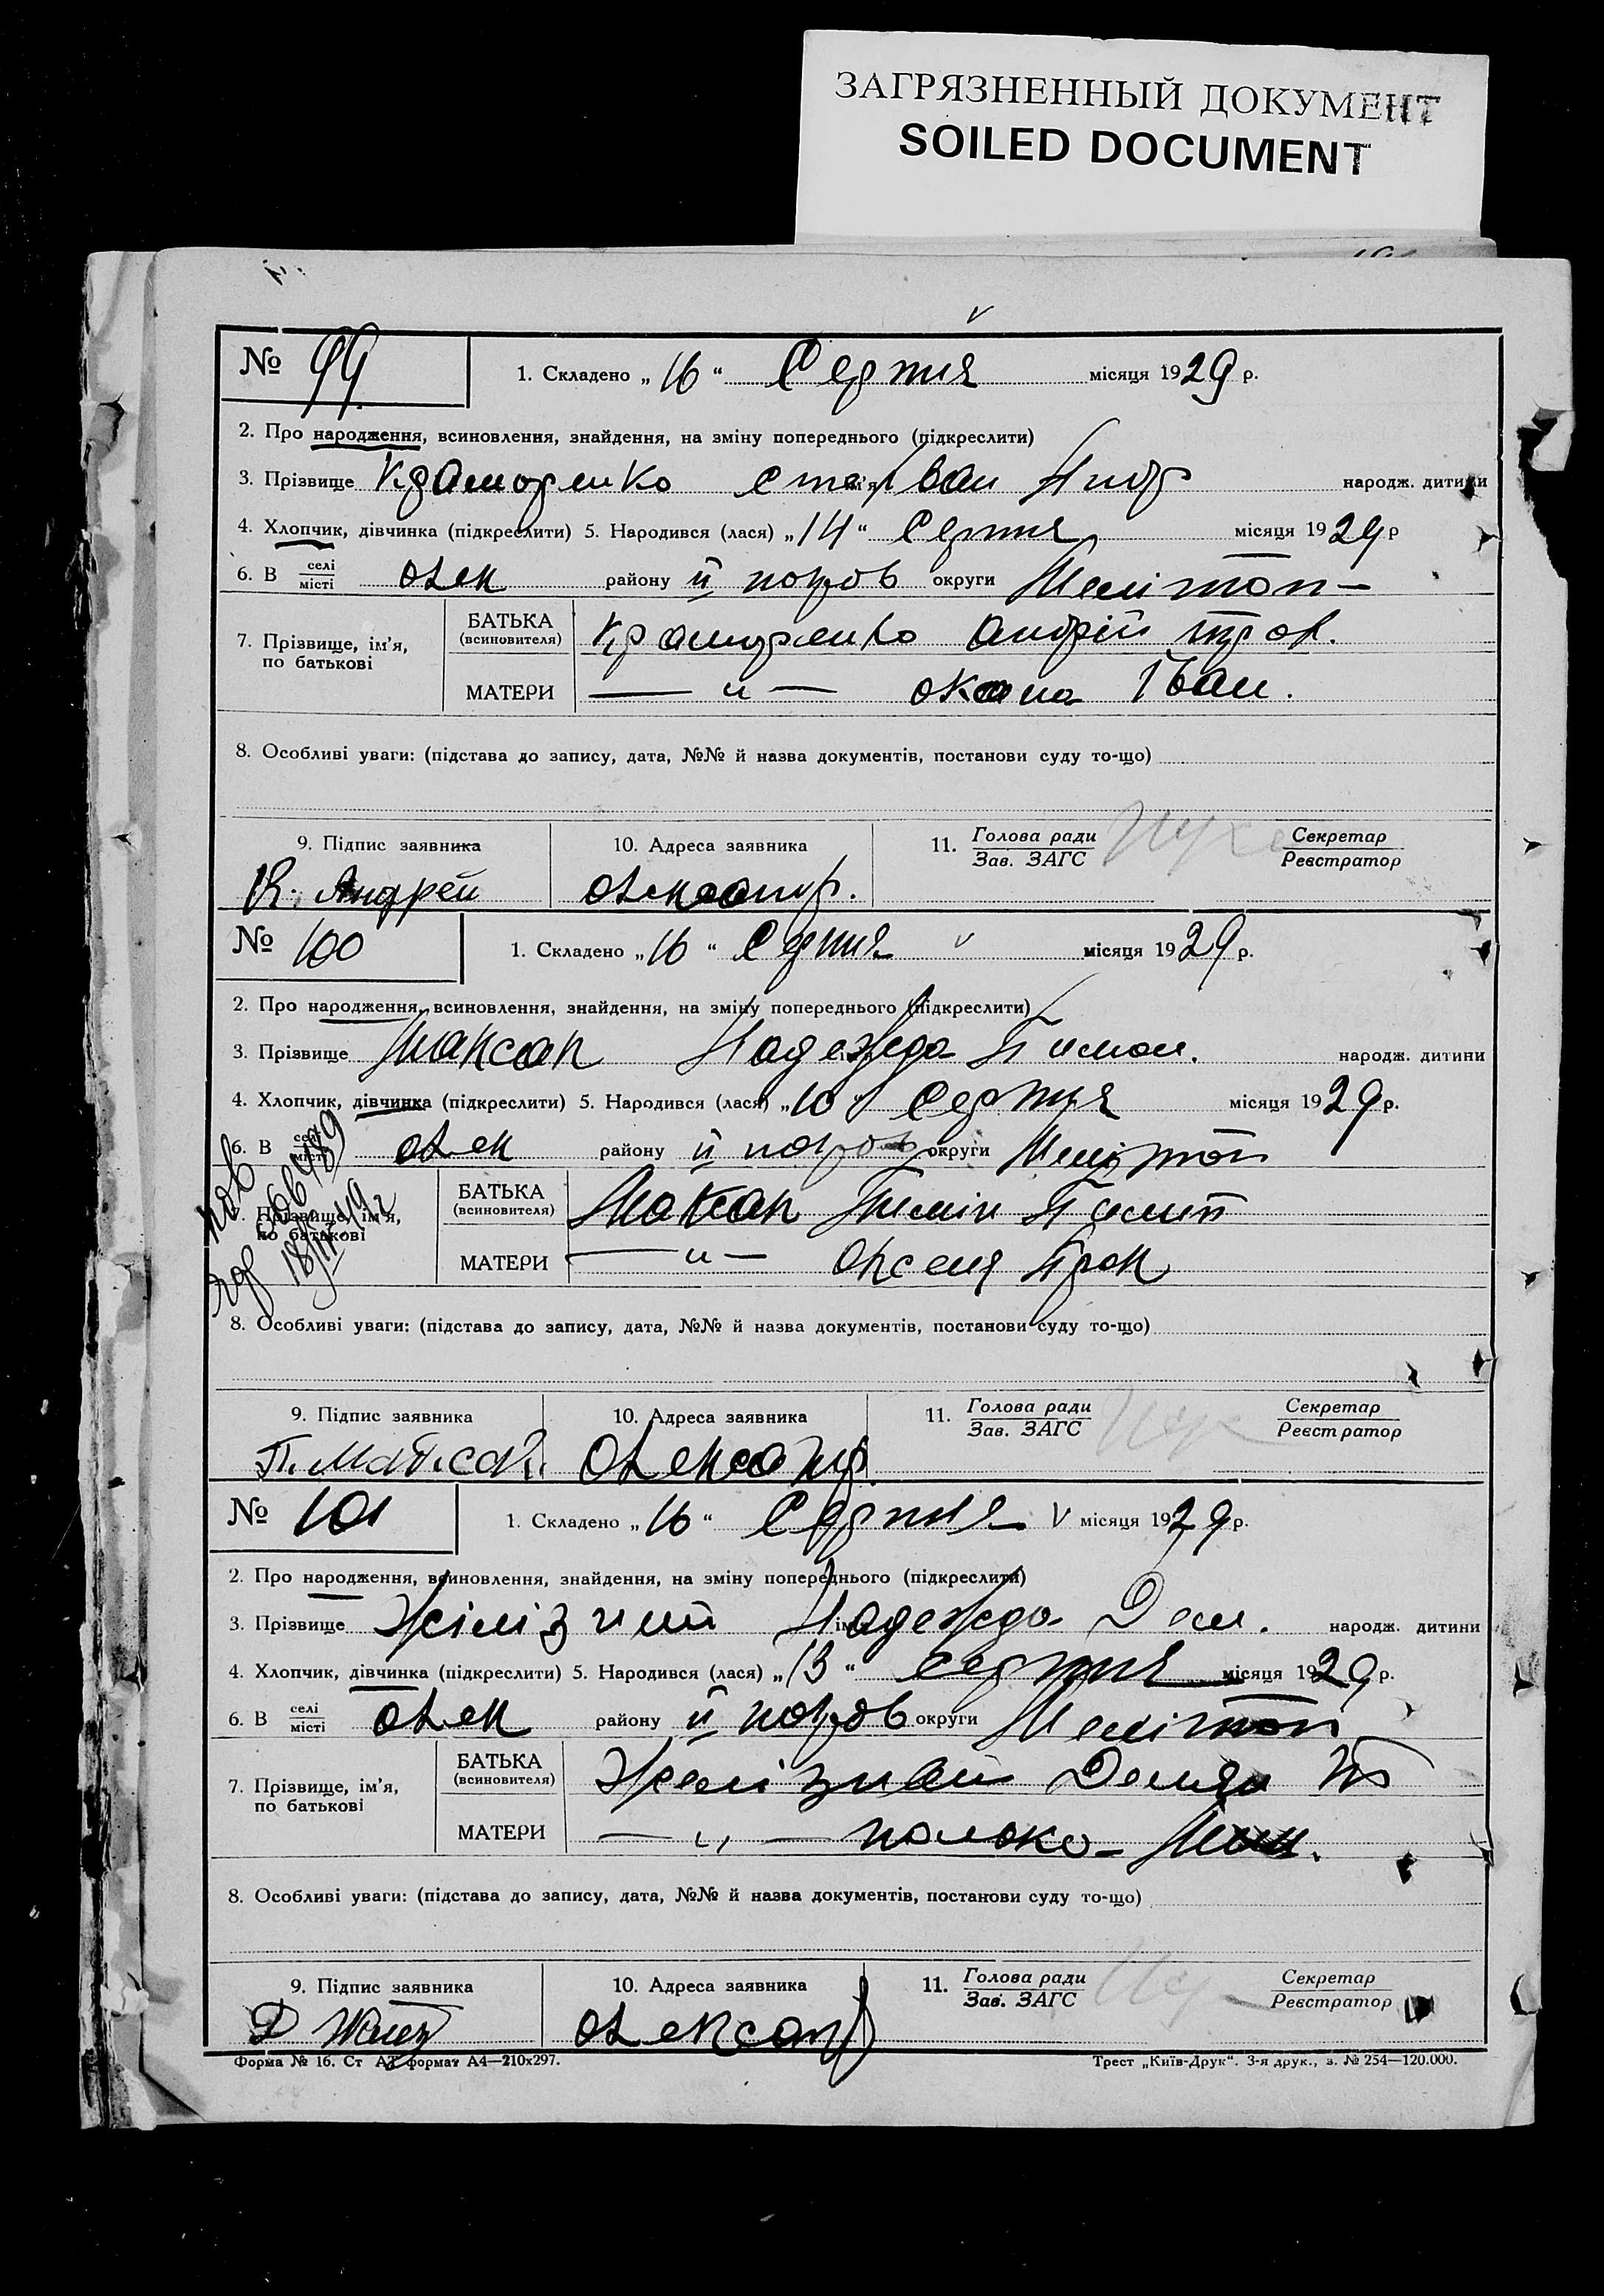 ЗАГРЯЗНЕННЫЙ ДОКУМЕНТ
SOILED DOCUMENT
№ 99.
1. Складено „16“ Серпня місяця 1929 р.
2. Про народження, всиновлення, знайдення, на зміну попереднього (підкреслити)
3. Прізвище Краморенко народж. дитини
4. Хлопчик, дівчинка (підкреслити) 5. Народився (лася) „14“ Серпня місяця 1929 р
6. В селі місті Олек району ІІ покров округи Мелітоп-
7. Прізвище, ім'я, по батькові
БАТЬКА (всиновителя) Краморенко Андрій
МАТЕРИ —〃— Іван.
8. Особливі уваги: (підстава до запису, дата, №№ й назва документів, постанови суду то-що)
9. Підпис заявника 10. Адреса заявника 11. Голова ради Зав. ЗАГС Секретар Реєстратор
К. Андрей Олександр.
№ 100 1. Складено „16“ Серпня місяця 1929 р.
2. Про народження, всиновлення, знайдення, на зміну попереднього (підкреслити)
3. Прізвище Максак Надежда Пимон. народж. дитини
4. Хлопчик, дівчинка (підкреслити) 5. Народився (лася) „10“ Серпня місяця 1929 р.
6. В селі місті Олек району ІІ покров округи Мелітоп
7. Прізвище, ім'я, по батькові
БАТЬКА (всиновителя) Максак Пимін
МАТЕРИ —〃— Оксеня Прок
8. Особливі уваги: (підстава до запису, дата, №№ й назва документів, постанови суду то-що)
9. Підпис заявника 10. Адреса заявника 11. Голова ради Зав. ЗАГС Секретар Реєстратор
П. Максак. Олександр.
№ 101 1. Складено „16“ Серпня місяця 1929 р.
2. Про народження, всиновлення, знайдення, на зміну попереднього (підкреслити)
3. Прізвище Надежда Дем. народж. дитини
4. Хлопчик, дівчинка (підкреслити) 5. Народився (лася) „13“ Серпня місяця 1929 р.
6. В селі місті Олек району ІІ покров округи Мелітоп
7. Прізвище, ім'я, по батькові
БАТЬКА (всиновителя) Желізний Демян
МАТЕРИ —〃—
8. Особливі уваги: (підстава до запису, дата, №№ й назва документів, постанови суду то-що)
9. Підпис заявника 10. Адреса заявника 11. Голова ради Зав. ЗАГС Секретар Реєстратор
Д Олександ
Форма № 16. Ст А3 формат А4—210х297. Трест „Київ-Друк“. 3-я друк., з. № 254—120.000.